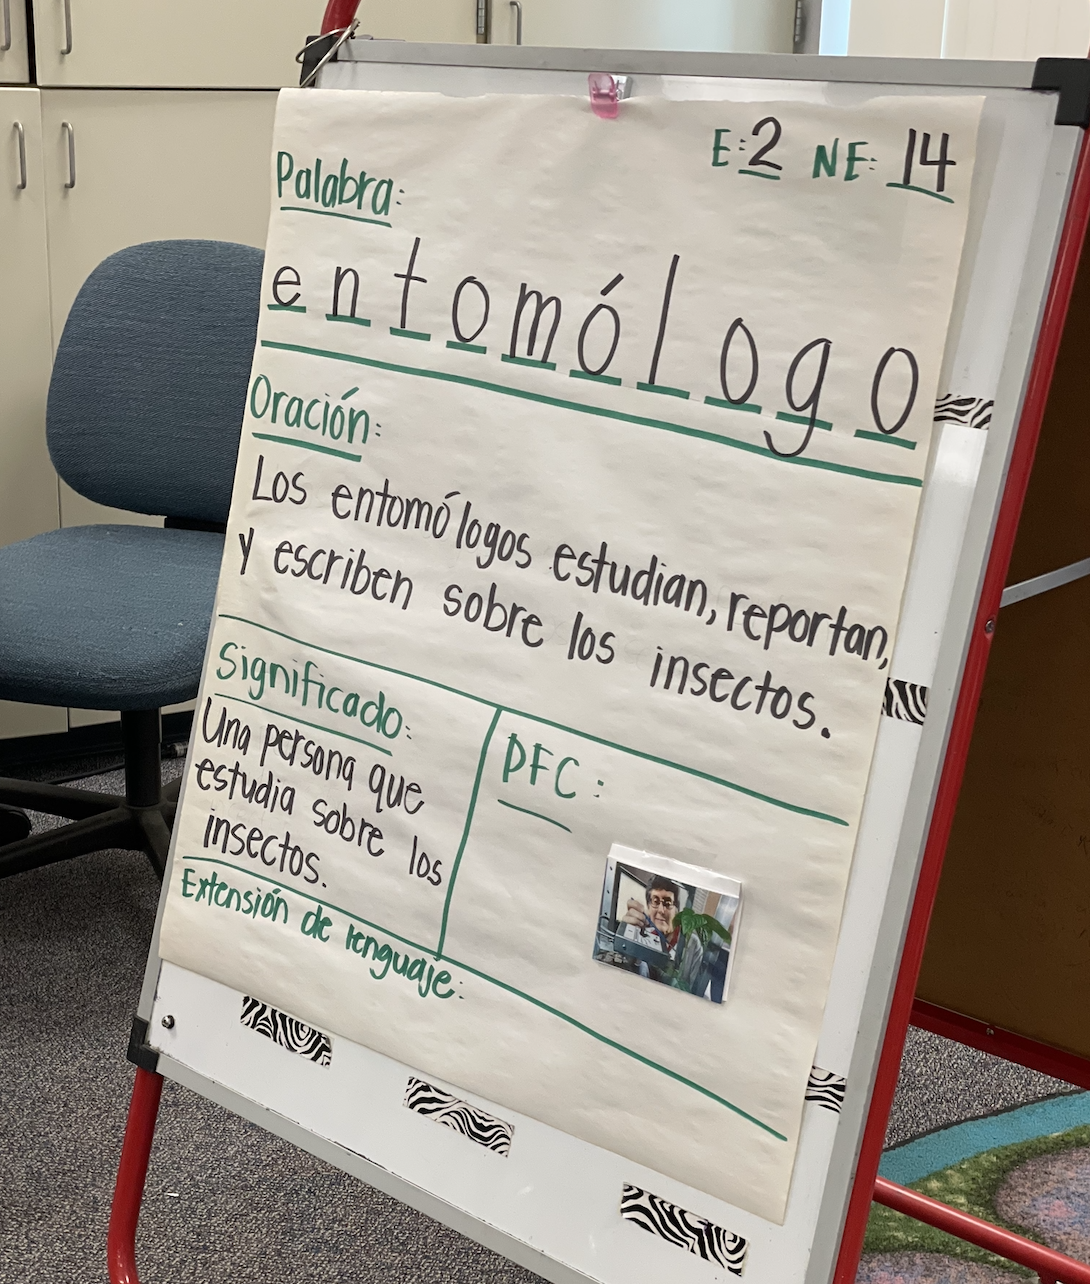 E: 2 NE: 14
Palabra:
entomólogo
Oración:
Los entomólogos estudian, reportan,
y escriben sobre los insectos.
Significado:
Una persona que
estudia sobre los
insectos.
DFC:
Extensión de lenguaje: